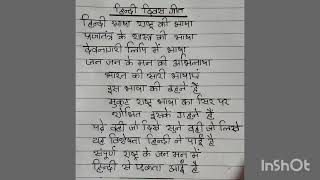 हिन्दी दिवस गीत
हिन्दी भाषा राष्ट्र की भाषा
प्रजातंत्र के शासन की भाषा
देवनागरी लिपि में भाषा
जन जन के मन की अभिलाषा
भारत की सारी भाषाएं
इस भाषा की बहनें हैं
मुकुट राष्ट्र भाषा का सिर पर
शोभित इसके गहने हैं
पढ़े वही जो दिखे सुने वही जो लिखे
यह विशेषता हिन्दी ने पाई है
संपूर्ण राष्ट्र के जन मन में
हिन्दी से एकता आई है
InShOt